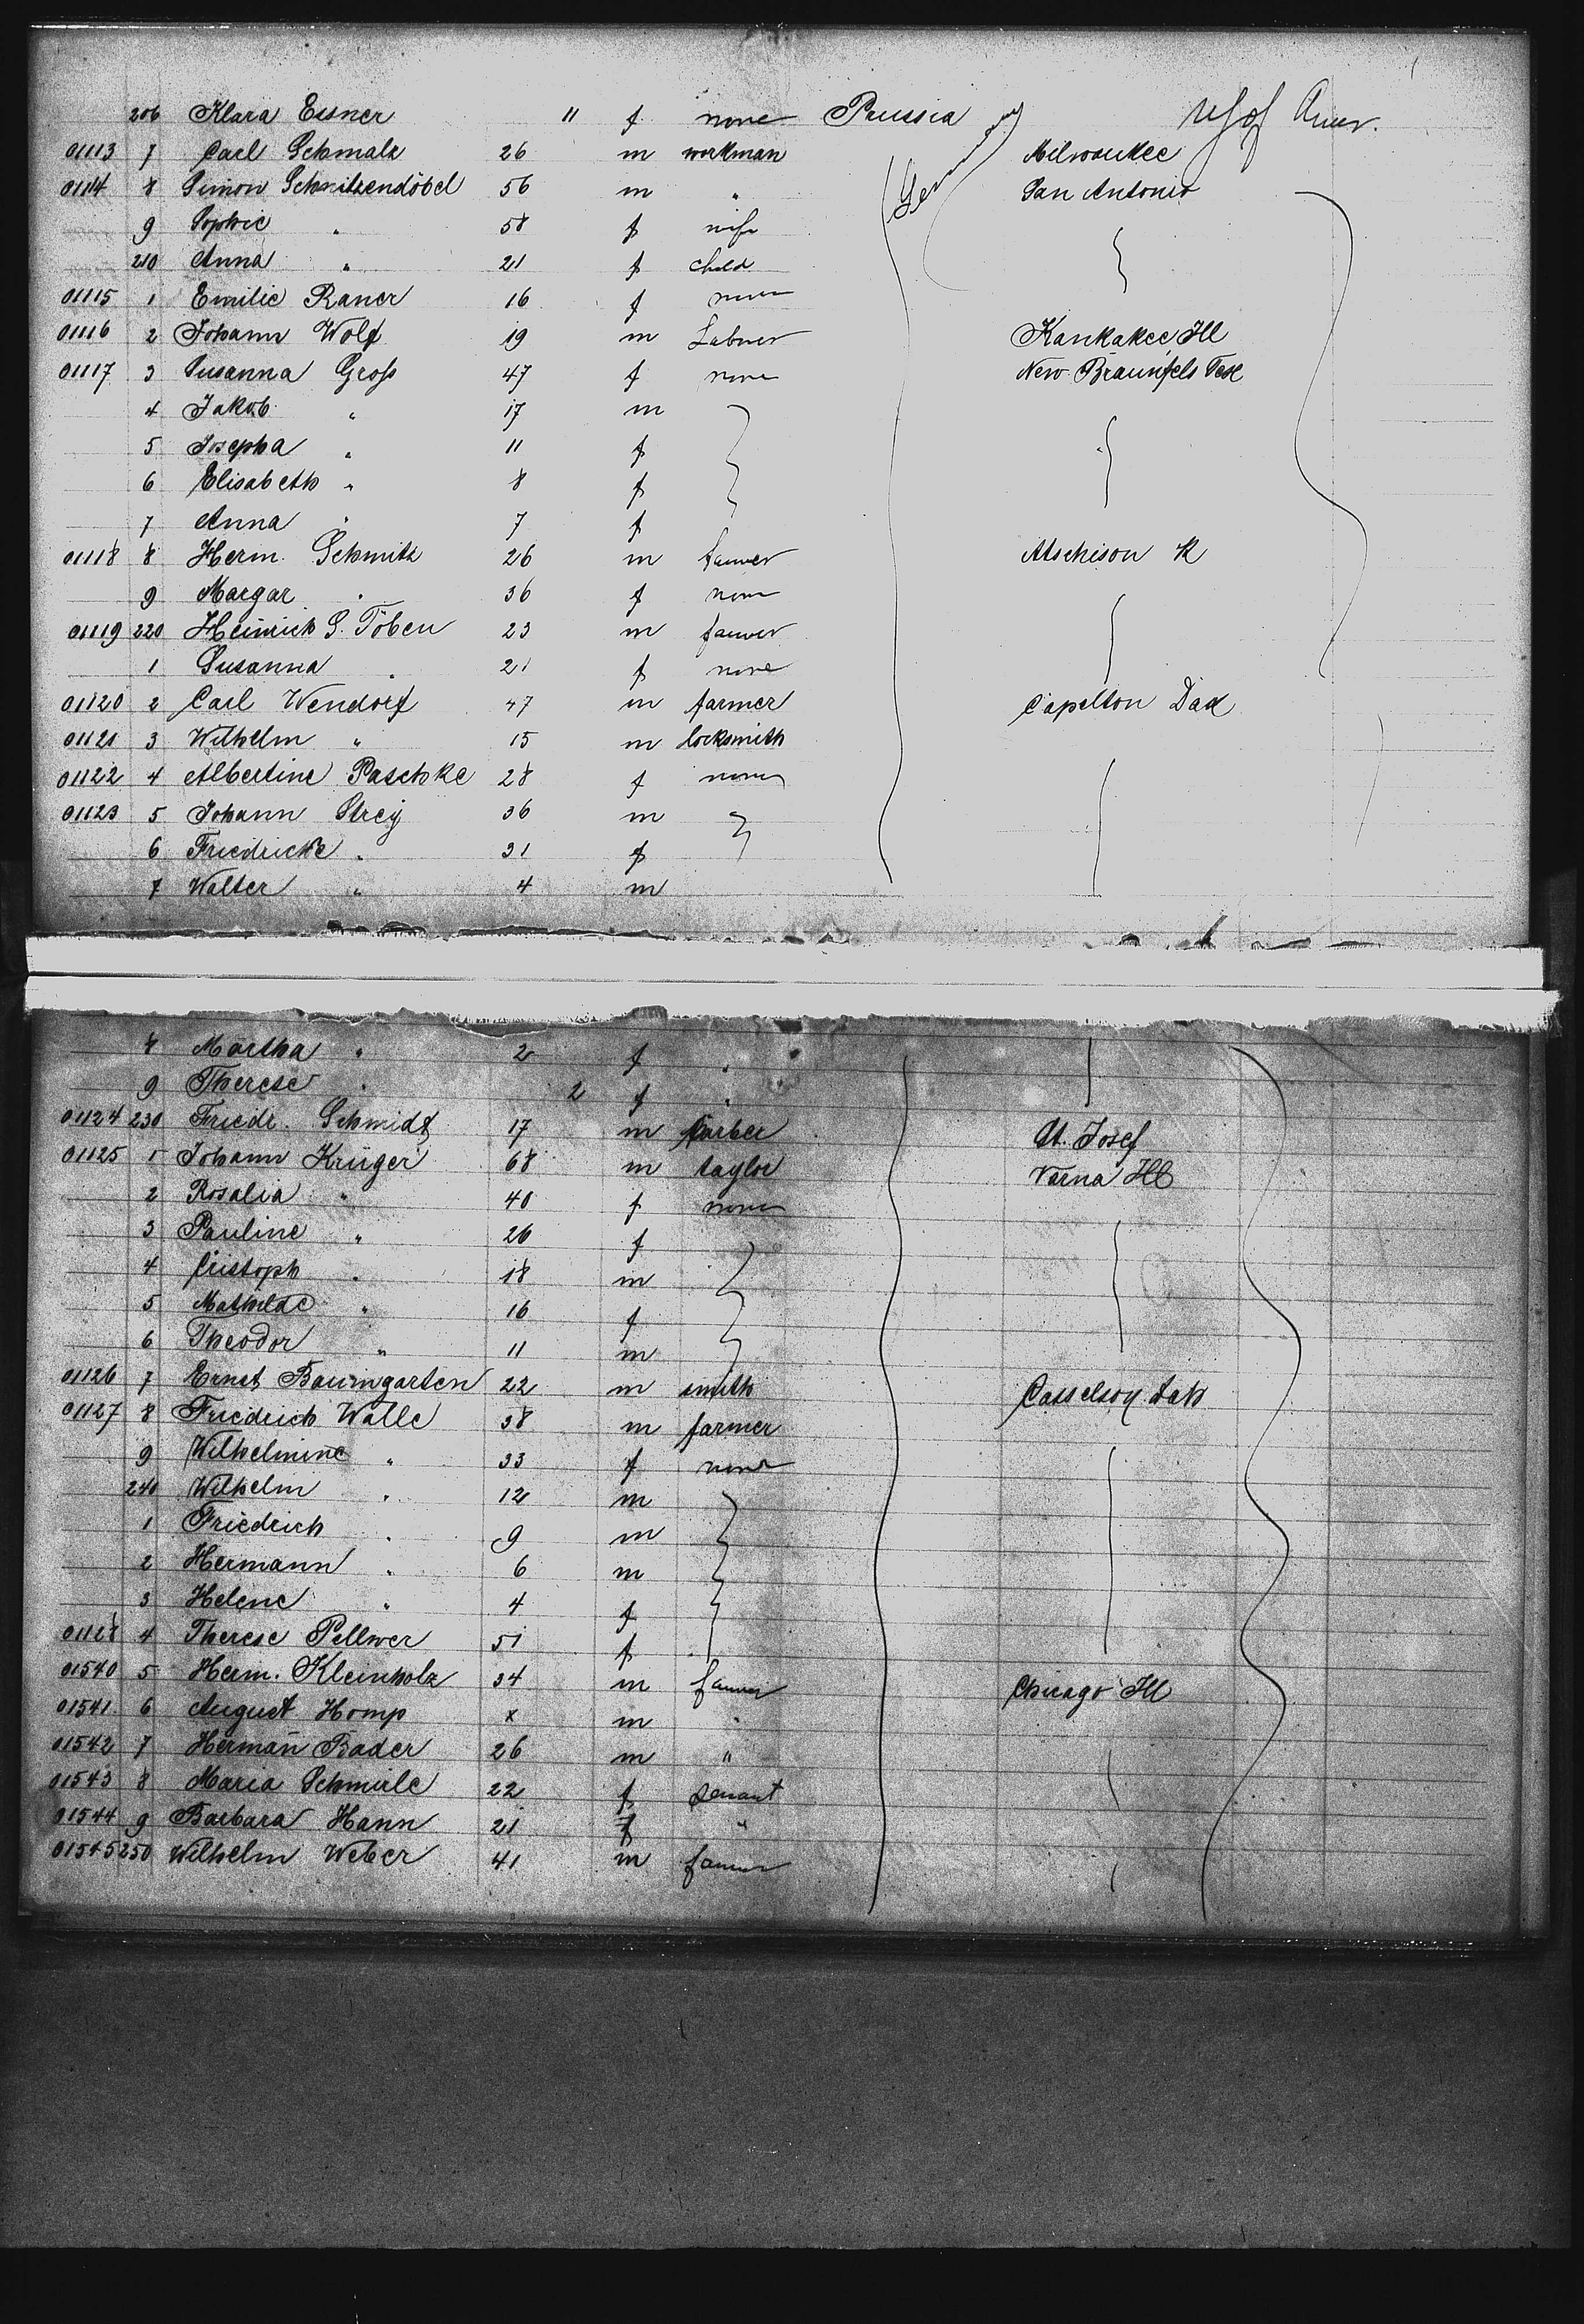 206 Klara Essner 11 f none Prussia US of Amer.
01113 7 Carl Schmalz 26 m workman Germany Milwaukee
01114 8 Simon Schnitzendöbel 56 m " San Antonio
9 Sophie " 58 f wife
210 Anna " 21 f child
01115 1 Emilie Raner 16 f none
01116 2 Johann Wolf 19 m Labrer Kankakee Ill
01117 3 Susanna Groß 47 f none New Braunfels Tex
4 Jakob " 17 m
5 Josepha " 11 f
6 Elisabeth " 8 f
7 Anna " 7 f
01118 8 Herm. Schmitz 26 m farmer Atschison K
9 Margar " 36 f none
01119 220 Heinrich S. Töben 23 m farmer
1 Susanna " 21 f none
01120 2 Carl Wendorf 47 m farmer Capelton Dak
01121 3 Wilhelm " 15 m locksmith
01122 4 Albertine Paschke 28 f none
01123 5 Johann Strey 36 m
6 Friedricke " 31 f
7 Walter " 4 m
8 Martha " 2 f "
9 Therese " 2 f "
01124 230 Friedr. Schmidt 17 m barber St. Josef
01125 1 Johann Krüger 68 m taylor Varna Ill
2 Rosalia " 40 f none
3 Pauline " 26 f
4 Cristoph " 18 m
5 Mathilde " 16 f
6 Theodor " 11 m
01126 7 Ernst Baumgarten 22 m smith Casselton Dak
01127 8 Friedrich Walle 38 m farmer
9 Wilhelmine " 33 f none
240 Wilhelm " 12 m
1 Friedrich " 9 m
2 Hermann " 6 m
3 Helene " 4 f
01128 4 Therese Pellwer 51 f
01540 5 Herm. Kleinholz 34 m farmer Chicago Ill
01541 6 August Homp x m "
01542 7 Herman Bader 26 m "
01543 8 Maria Schmirle 22 f servant
01544 9 Barbara Hann 21 f "
01545 250 Wilhelm Weber 41 m farmer